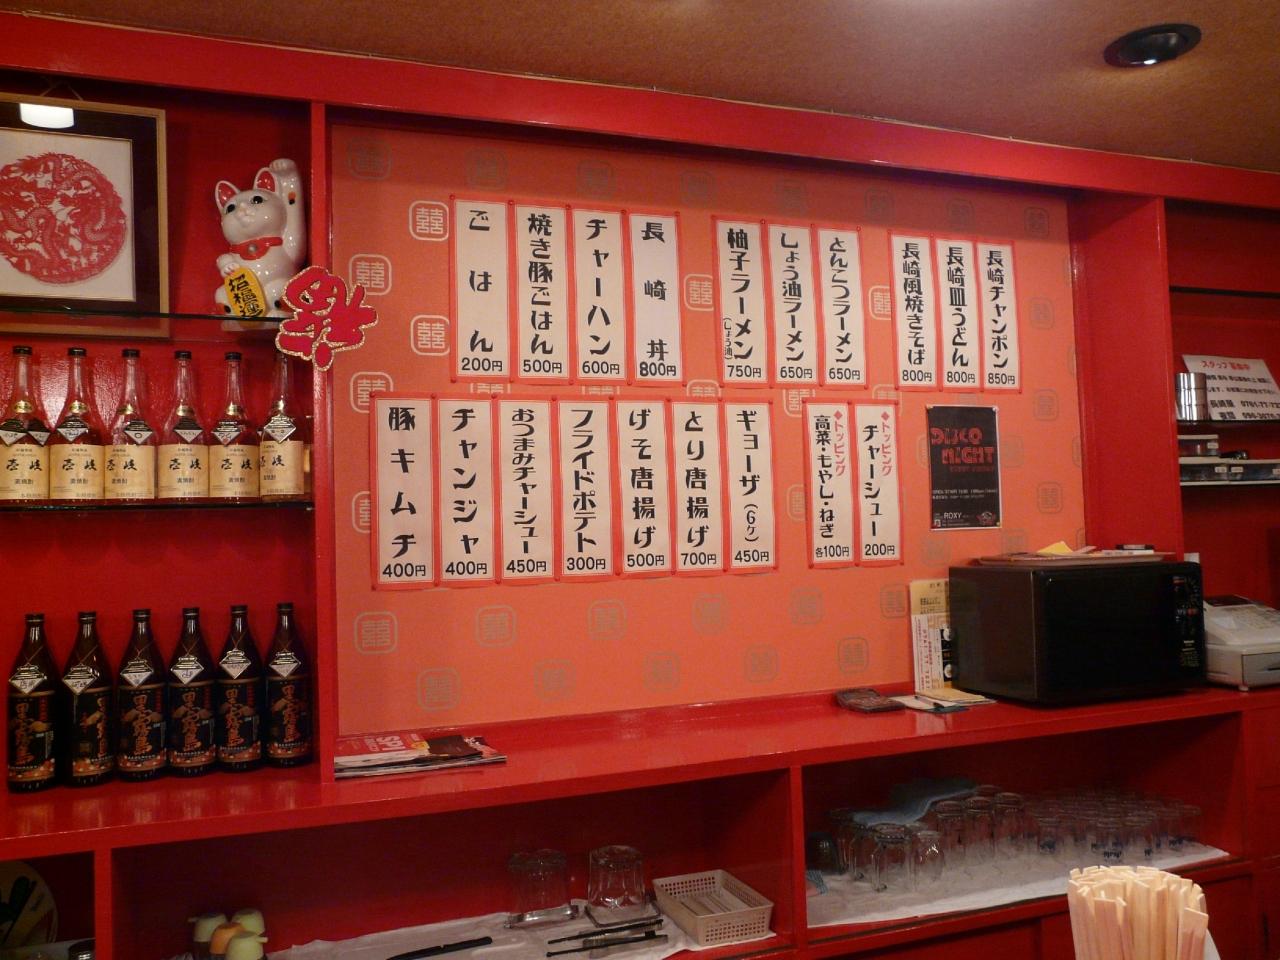 長崎チャンポン
850円
長崎皿うどん
800円
長崎風焼きそば
800円
とんこつラーメン
650円
しょう油ラーメン
650円
柚子ラーメン
(しょう油)
750円
長崎丼
800円
チャーハン
600円
焼き豚ごはん
500円
ごはん
200円
◆トッピング◆
チャーシュー
200円
◆トッピング◆
高菜・もやし・ねぎ
各100円
ギョーザ(6ケ)
450円
とり唐揚げ
700円
げそ唐揚げ
500円
フライドポテト
300円
おつまみチャーシュー
450円
チャンジャ
400円
豚キムチ
400円
DISCO
NIGHT
ROXY
スタッフ募集中
招福運
福
壱岐
麦焼酎
壱岐
麦焼酎
壱岐
麦焼酎
壱岐
麦焼酎
壱岐
麦焼酎
壱岐
麦焼酎
黒霧島
黒霧島
黒霧島
黒霧島
黒霧島
黒霧島